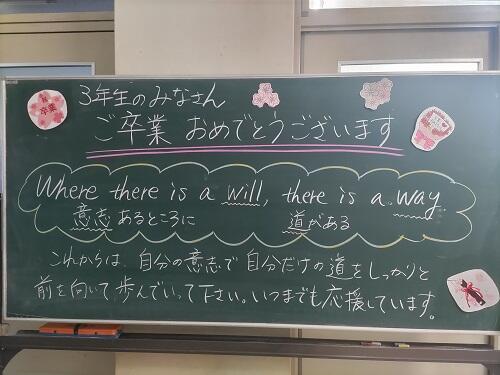 3年生のみなさん
ご卒業 おめでとうございます
Where there is a will, there is a way
意志あるところに 道がある
これからは、自分の意志で自分だけの道をしっかりと
前を向いて歩んでいって下さい。いつまでも応援しています。
卒業